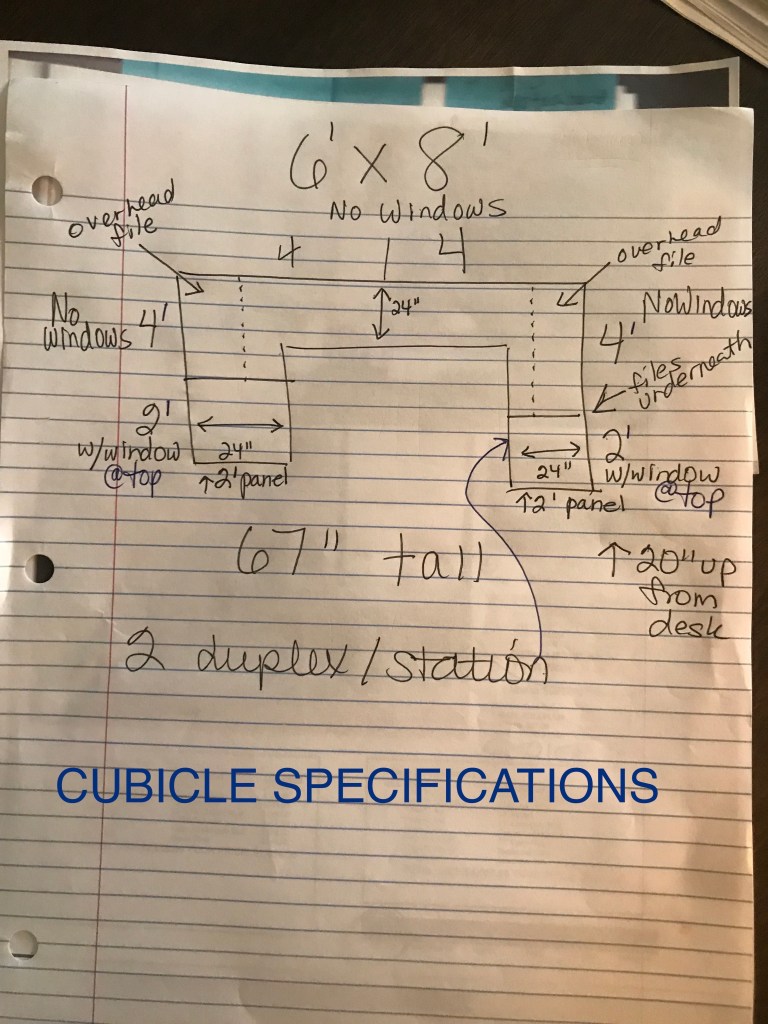 6' X 8'
No Windows
overhead
file
4 | 4
overhead
file
No
windows
4'
24"
No Windows
4'
files
underneath
2'
w/window
@top
24"
↑2' panel
2'
w/window
@top
24"
↑2' panel
67" tall
↑20" up
from
desk
2 duplex/station
CUBICLE SPECIFICATIONS